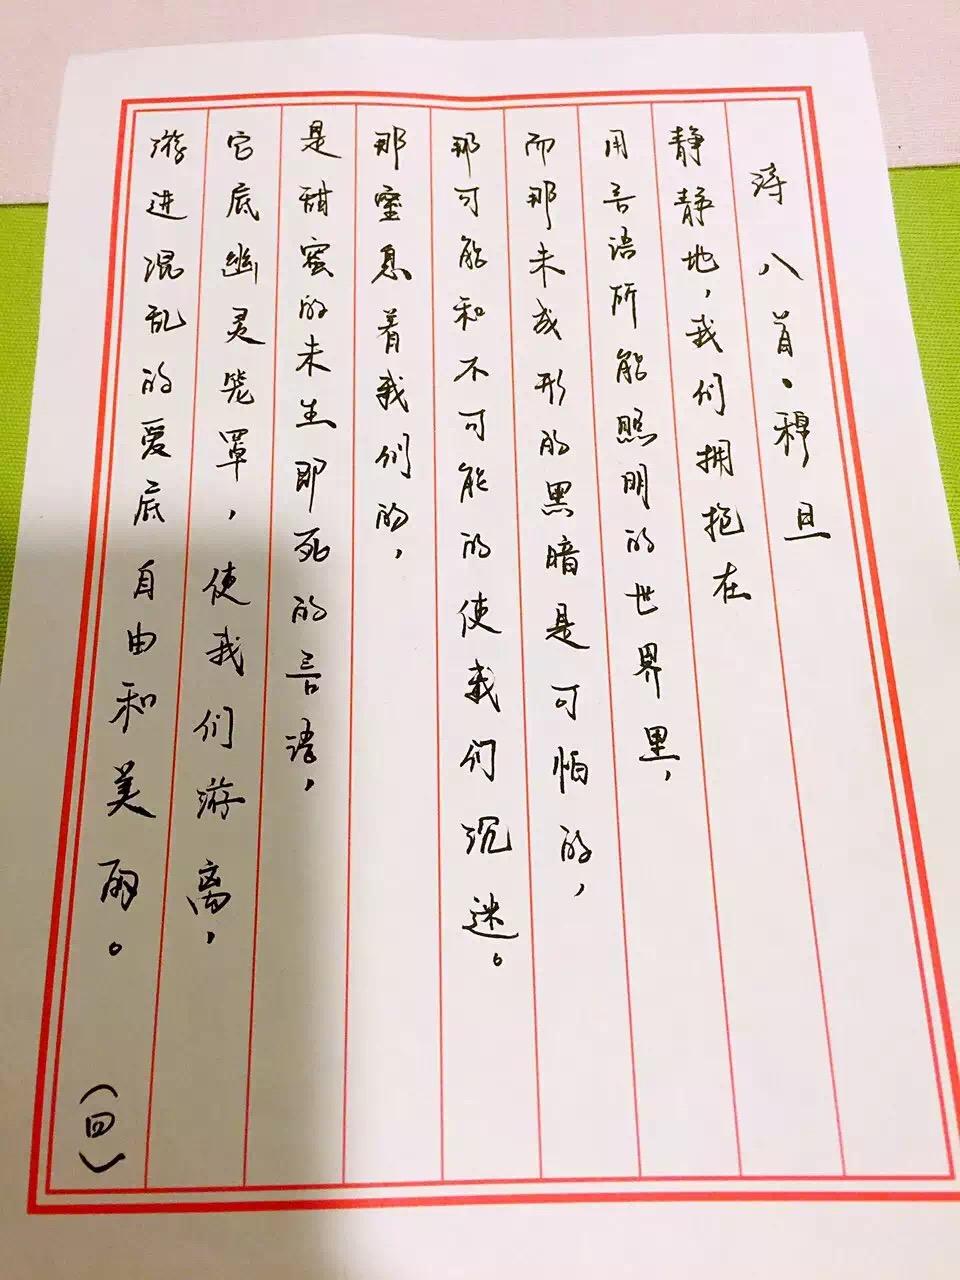 诗八首·穆旦
静静地，我们拥抱在
用言语所能照明的世界里，
而那未成形的黑暗是可怕的，
那可能和不可能的使我们沉迷。
那窒息着我们的，
是甜蜜的未生即死的言语，
它底幽灵笼罩，使我们游离，
游进混乱的爱底自由和美丽。
（四）